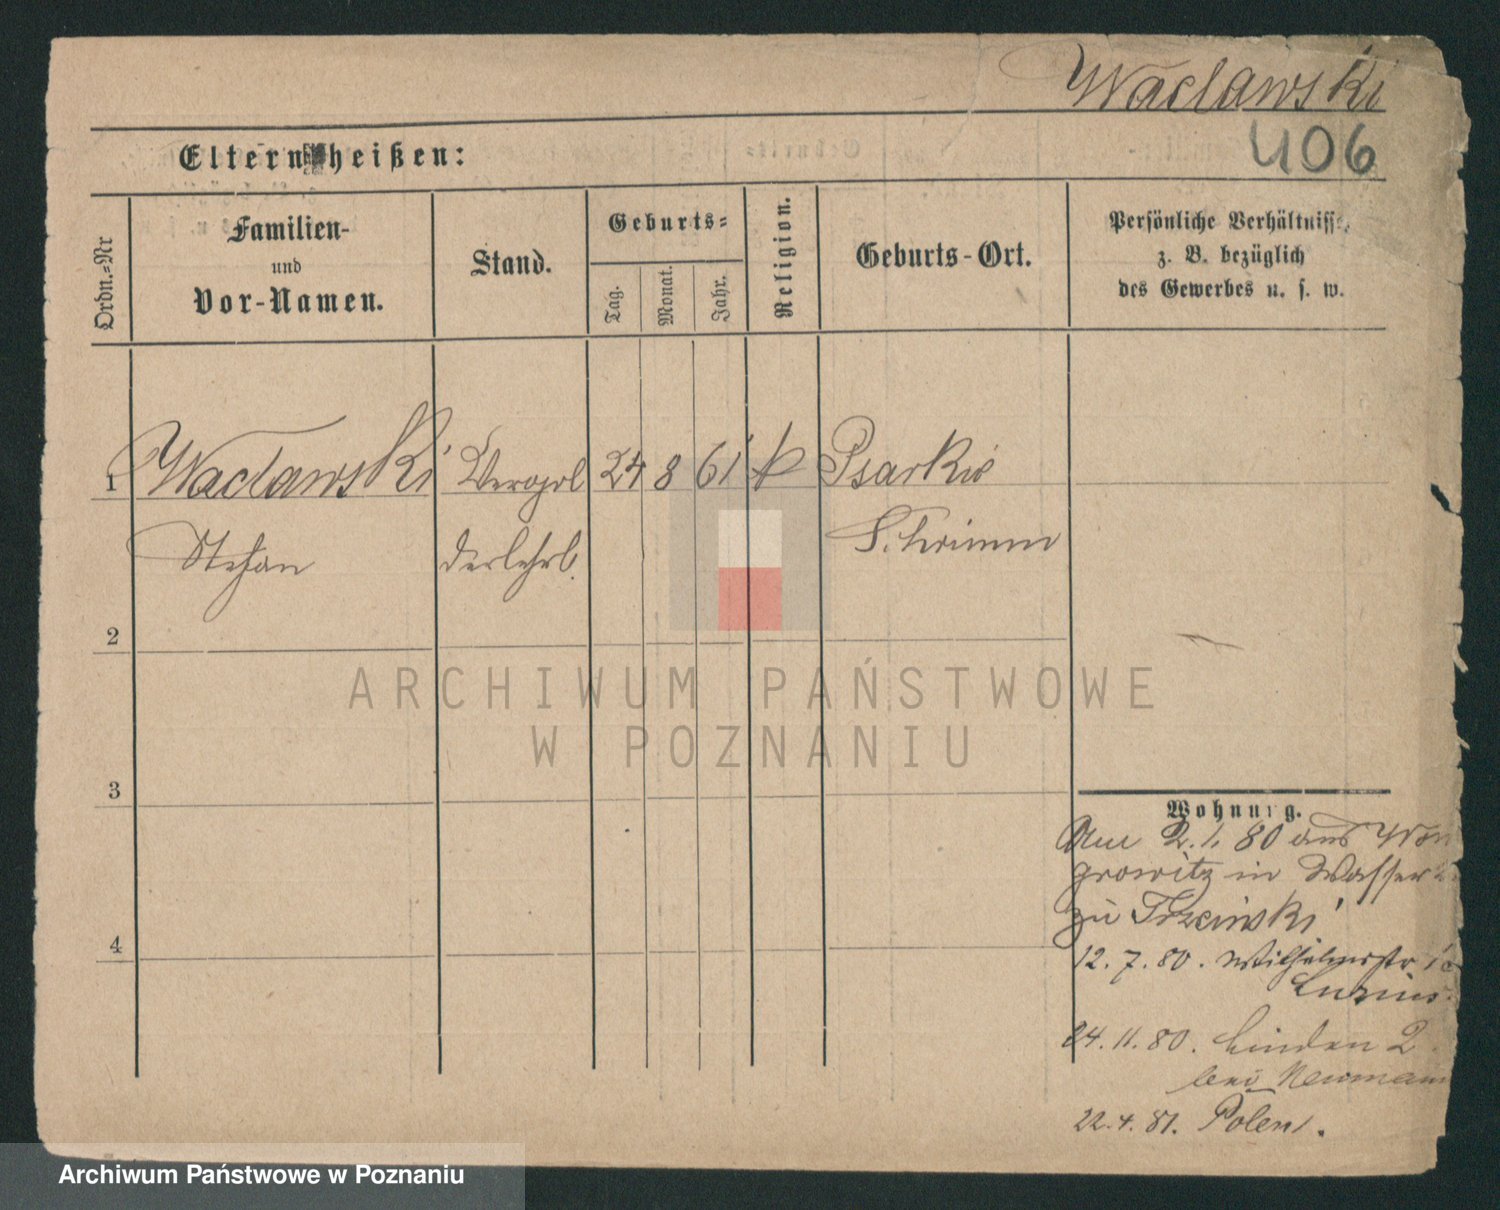 Wacławski
406
Eltern heißen:
Ordn.=Nr
Familien-
und
Vor-Namen.
Stand.
Geburts=
Tag.
Monat.
Jahr.
Religion.
Geburts-Ort.
Persönliche Verhältnisse,
z. B. bezüglich
des Gewerbes u. s. w.
1
Wacławski
Vergol
24
8
61
k
Psarkie
Stefan
derlehrl.
Schrimm
2
3
4
Wohnung.
2.1.80 aus Won
growitz in Wasser
zu Trzciński
12.7.80. Wilhelmstr
24.11.80. Linden 2
bei Neumann
22.4.81. Polen.
ARCHIWUM PAŃSTWOWE
W POZNANIU
Archiwum Państwowe w Poznaniu